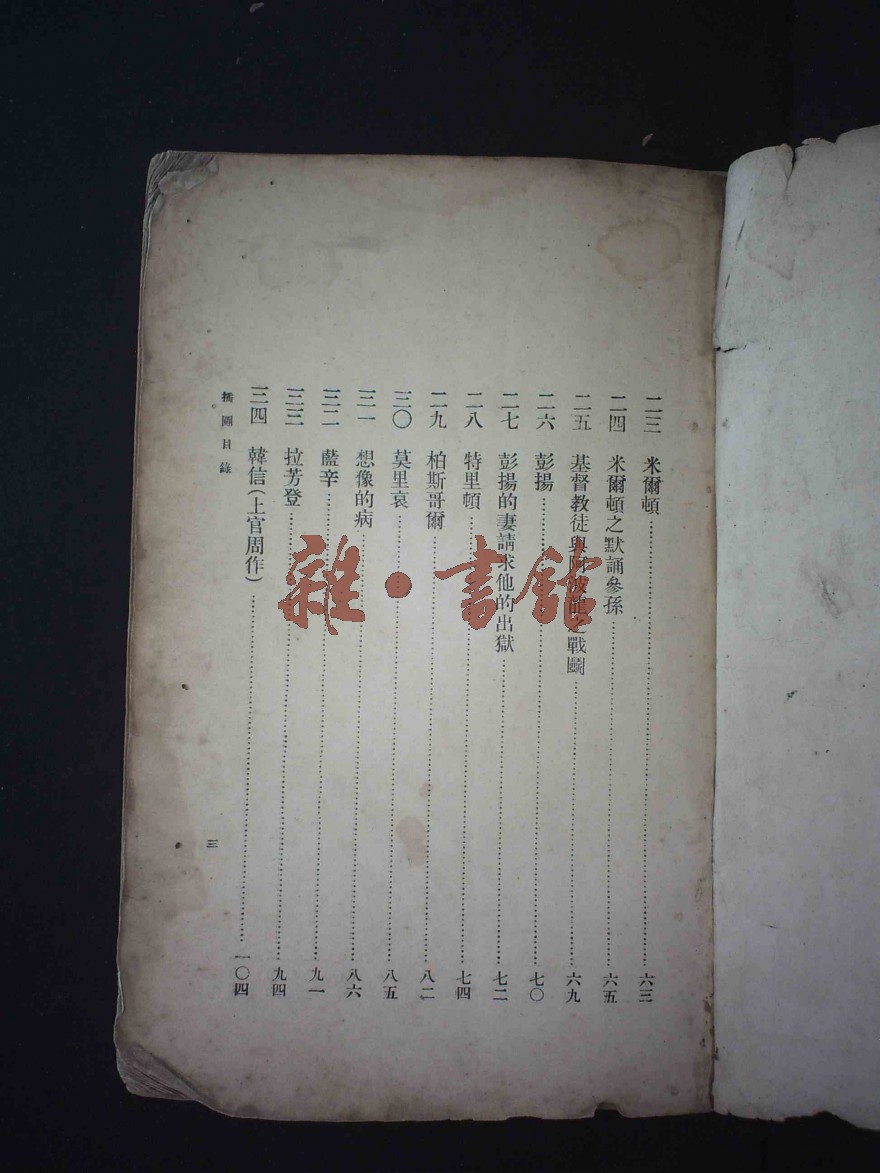 二三 米爾頓……六三
二四 米爾頓之默誦參孫……六五
二五 基督教徒與阿波龍之戰鬭……六九
二六 彭揚……七〇
二七 彭揚的妻請求他的出獄……七二
二八 特里頓……七四
二九 柏斯哥爾……八二
三〇 莫里哀……八五
三一 想像的病……八六
三二 藍辛……九一
三三 拉芳登……九四
三四 韓信(上官周作)……一〇四
插圖目錄
三
雜·書館